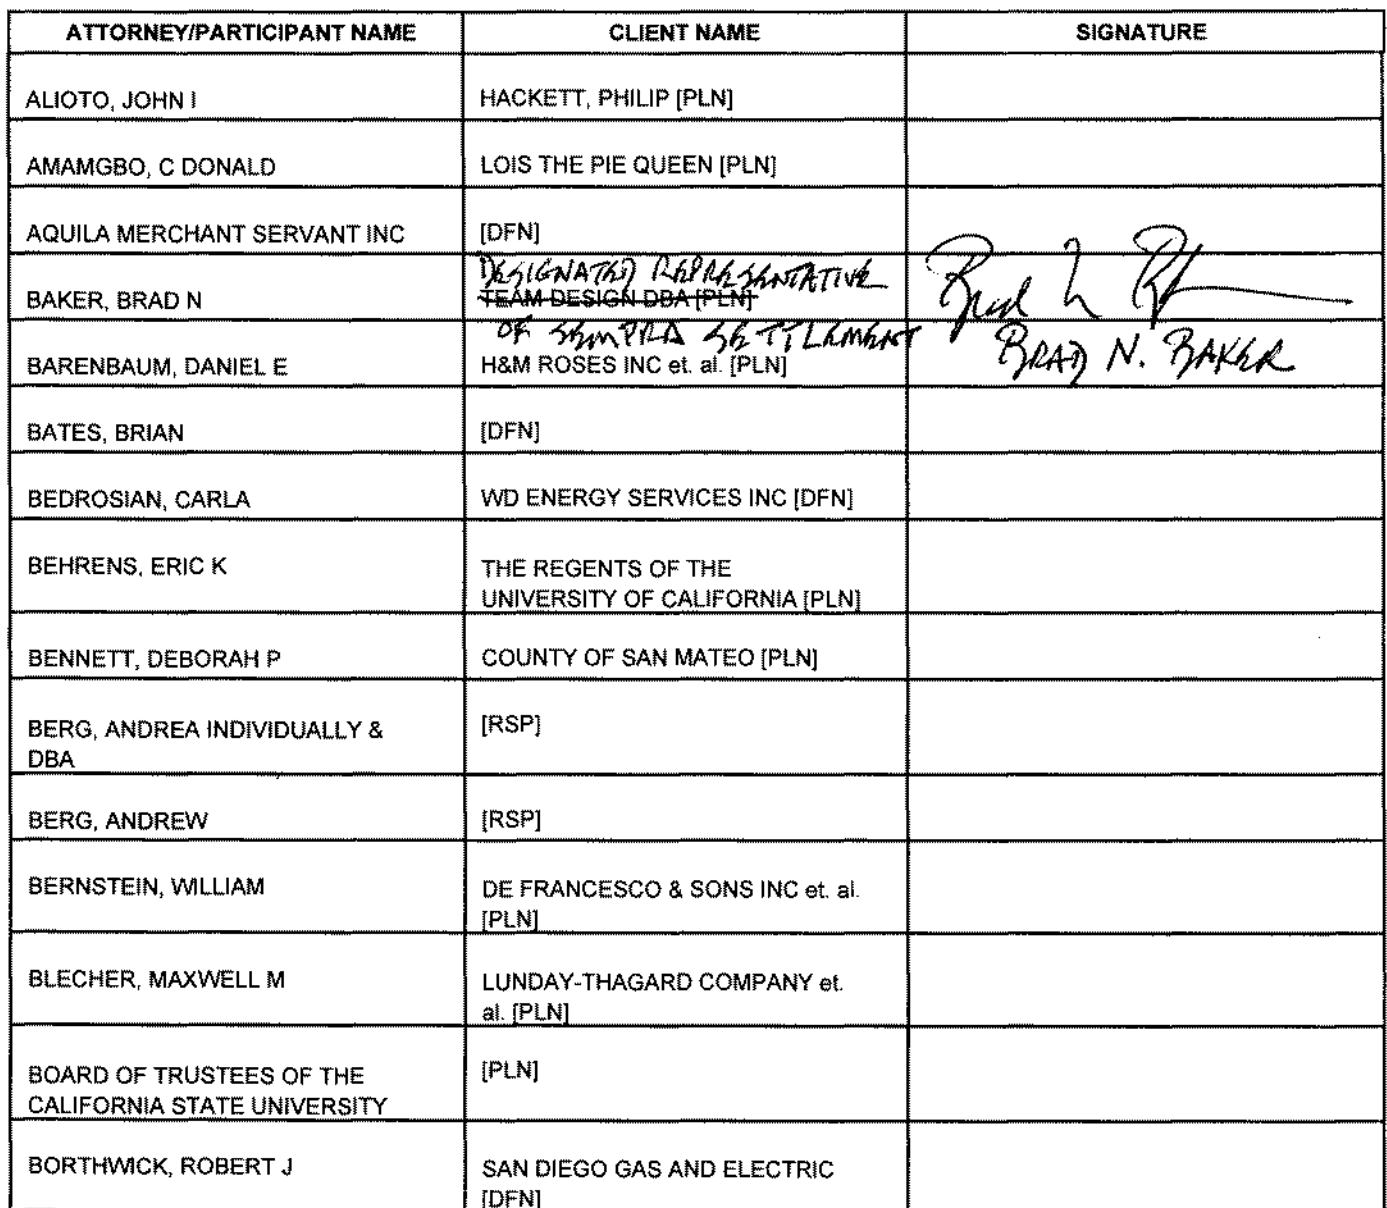 ATTORNEY/PARTICIPANT NAME CLIENT NAME SIGNATURE
ALIOTO, JOHN I HACKETT, PHILIP [PLN]
AMAMGBO, C DONALD LOIS THE PIE QUEEN [PLN]
AQUILA MERCHANT SERVANT INC [DFN]
DESIGNATED REPRESENTATIVE
BAKER, BRAD N TEAM DESIGN DBA [PLN] Brad N B
OF SEMPRA SETTLEMENT BRAD N. BAKER
BARENBAUM, DANIEL E H&M ROSES INC et. al. [PLN]
BATES, BRIAN [DFN]
BEDROSIAN, CARLA WD ENERGY SERVICES INC [DFN]
BEHRENS, ERIC K THE REGENTS OF THE
UNIVERSITY OF CALIFORNIA [PLN]
BENNETT, DEBORAH P COUNTY OF SAN MATEO [PLN]
BERG, ANDREA INDIVIDUALLY & [RSP]
DBA
BERG, ANDREW [RSP]
BERNSTEIN, WILLIAM DE FRANCESCO & SONS INC et. al.
[PLN]
BLECHER, MAXWELL M LUNDAY-THAGARD COMPANY et.
al. [PLN]
BOARD OF TRUSTEES OF THE [PLN]
CALIFORNIA STATE UNIVERSITY
BORTHWICK, ROBERT J SAN DIEGO GAS AND ELECTRIC
[DFN]